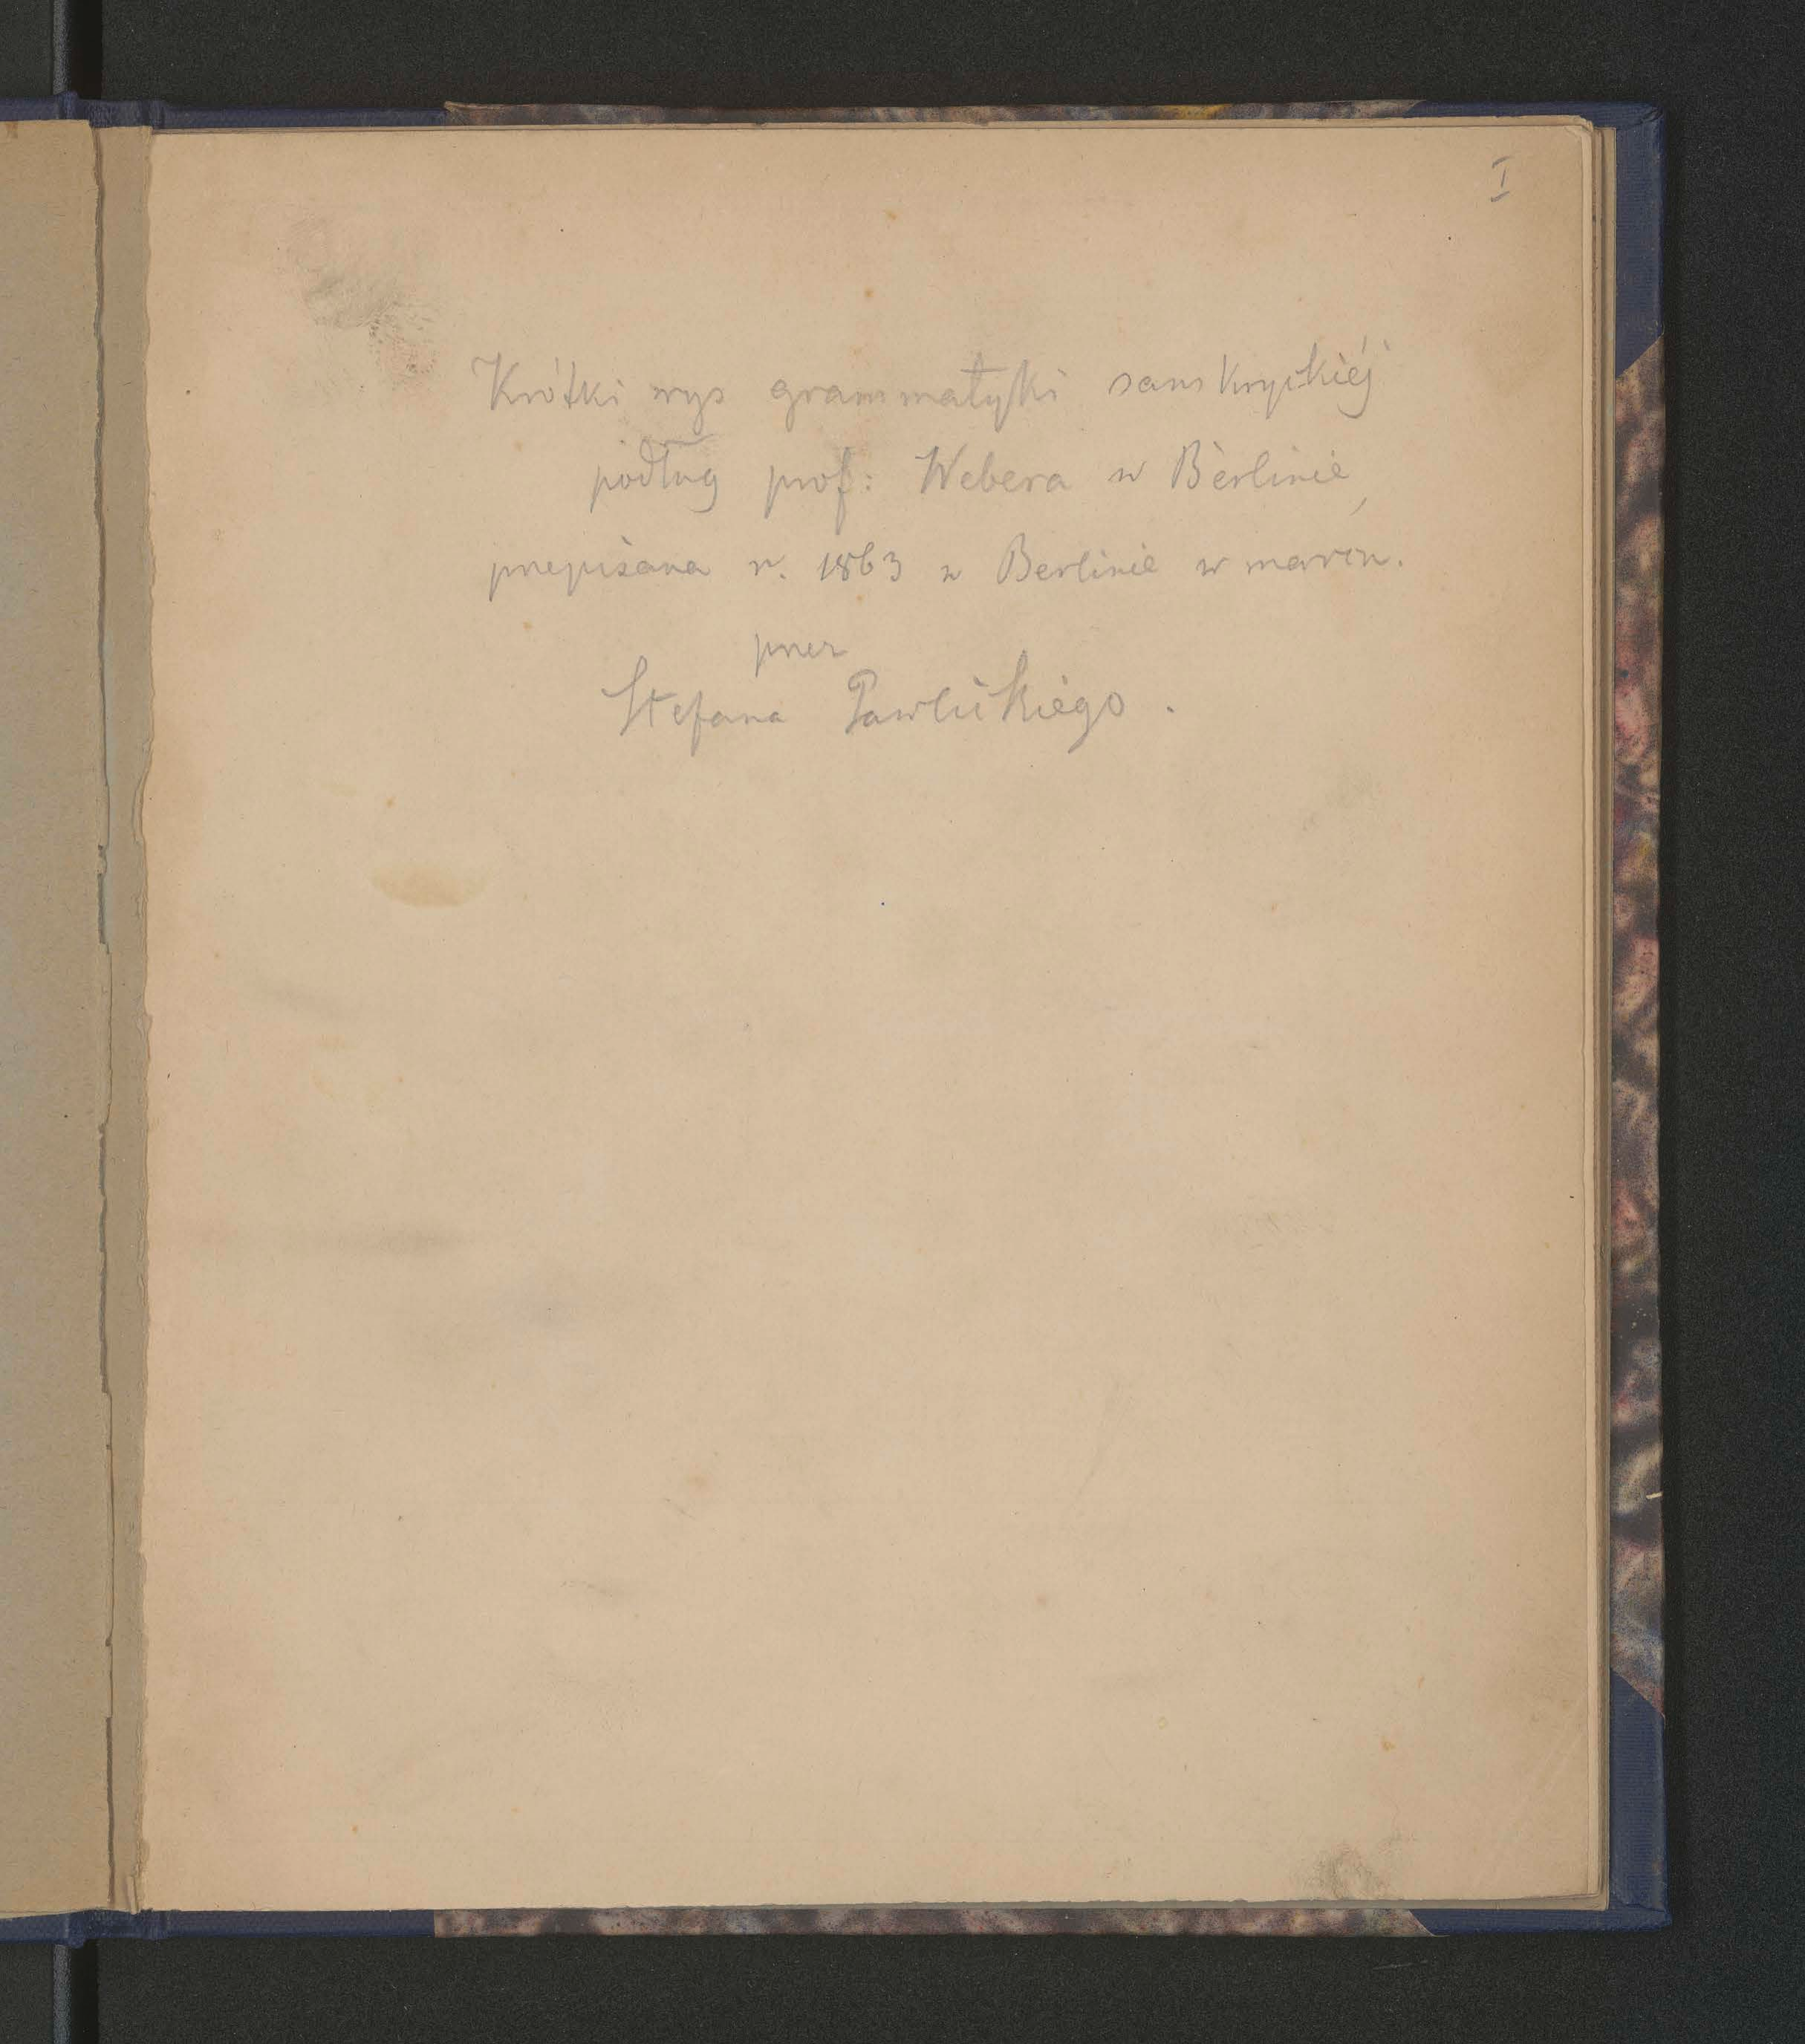 I
Krótki rys grammatyki sanskryckiéj
podług prof: Webera w Berlinie,
przepisana r. 1863 w Berlinie w marcu.
przez
Stefana Pawlickiego.